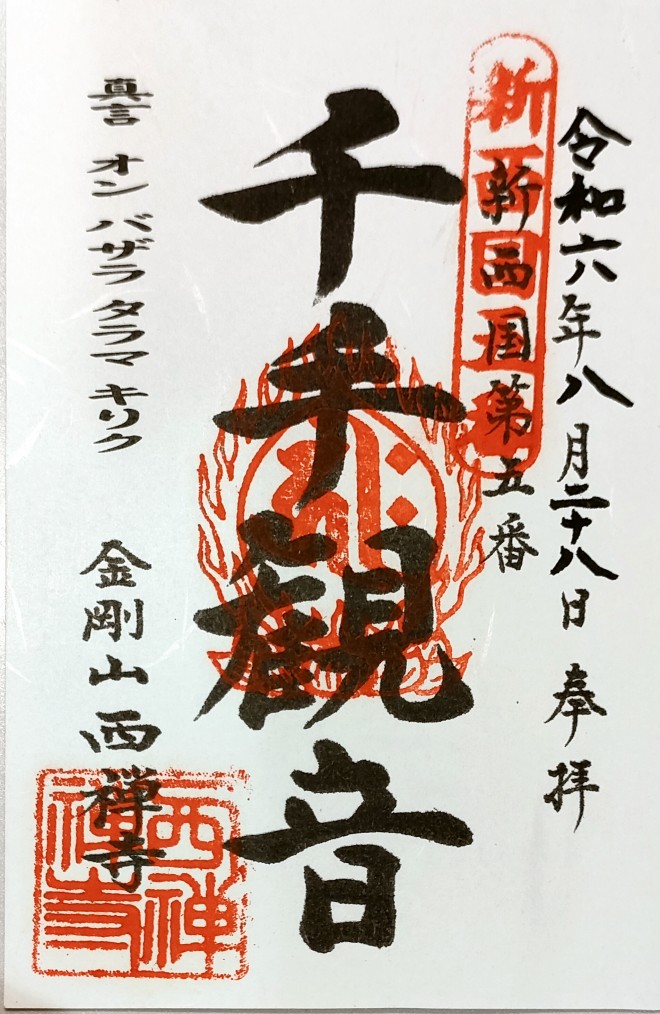 令和六年八月二十八日 奉拝
新西国第五番
千手観音
真言 オン バザラ タラマ キリク
金剛山 西禅寺